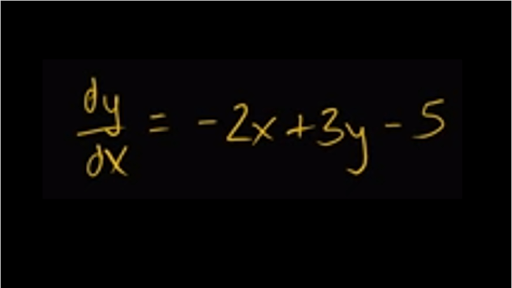 dy/dx = -2x+3y-5